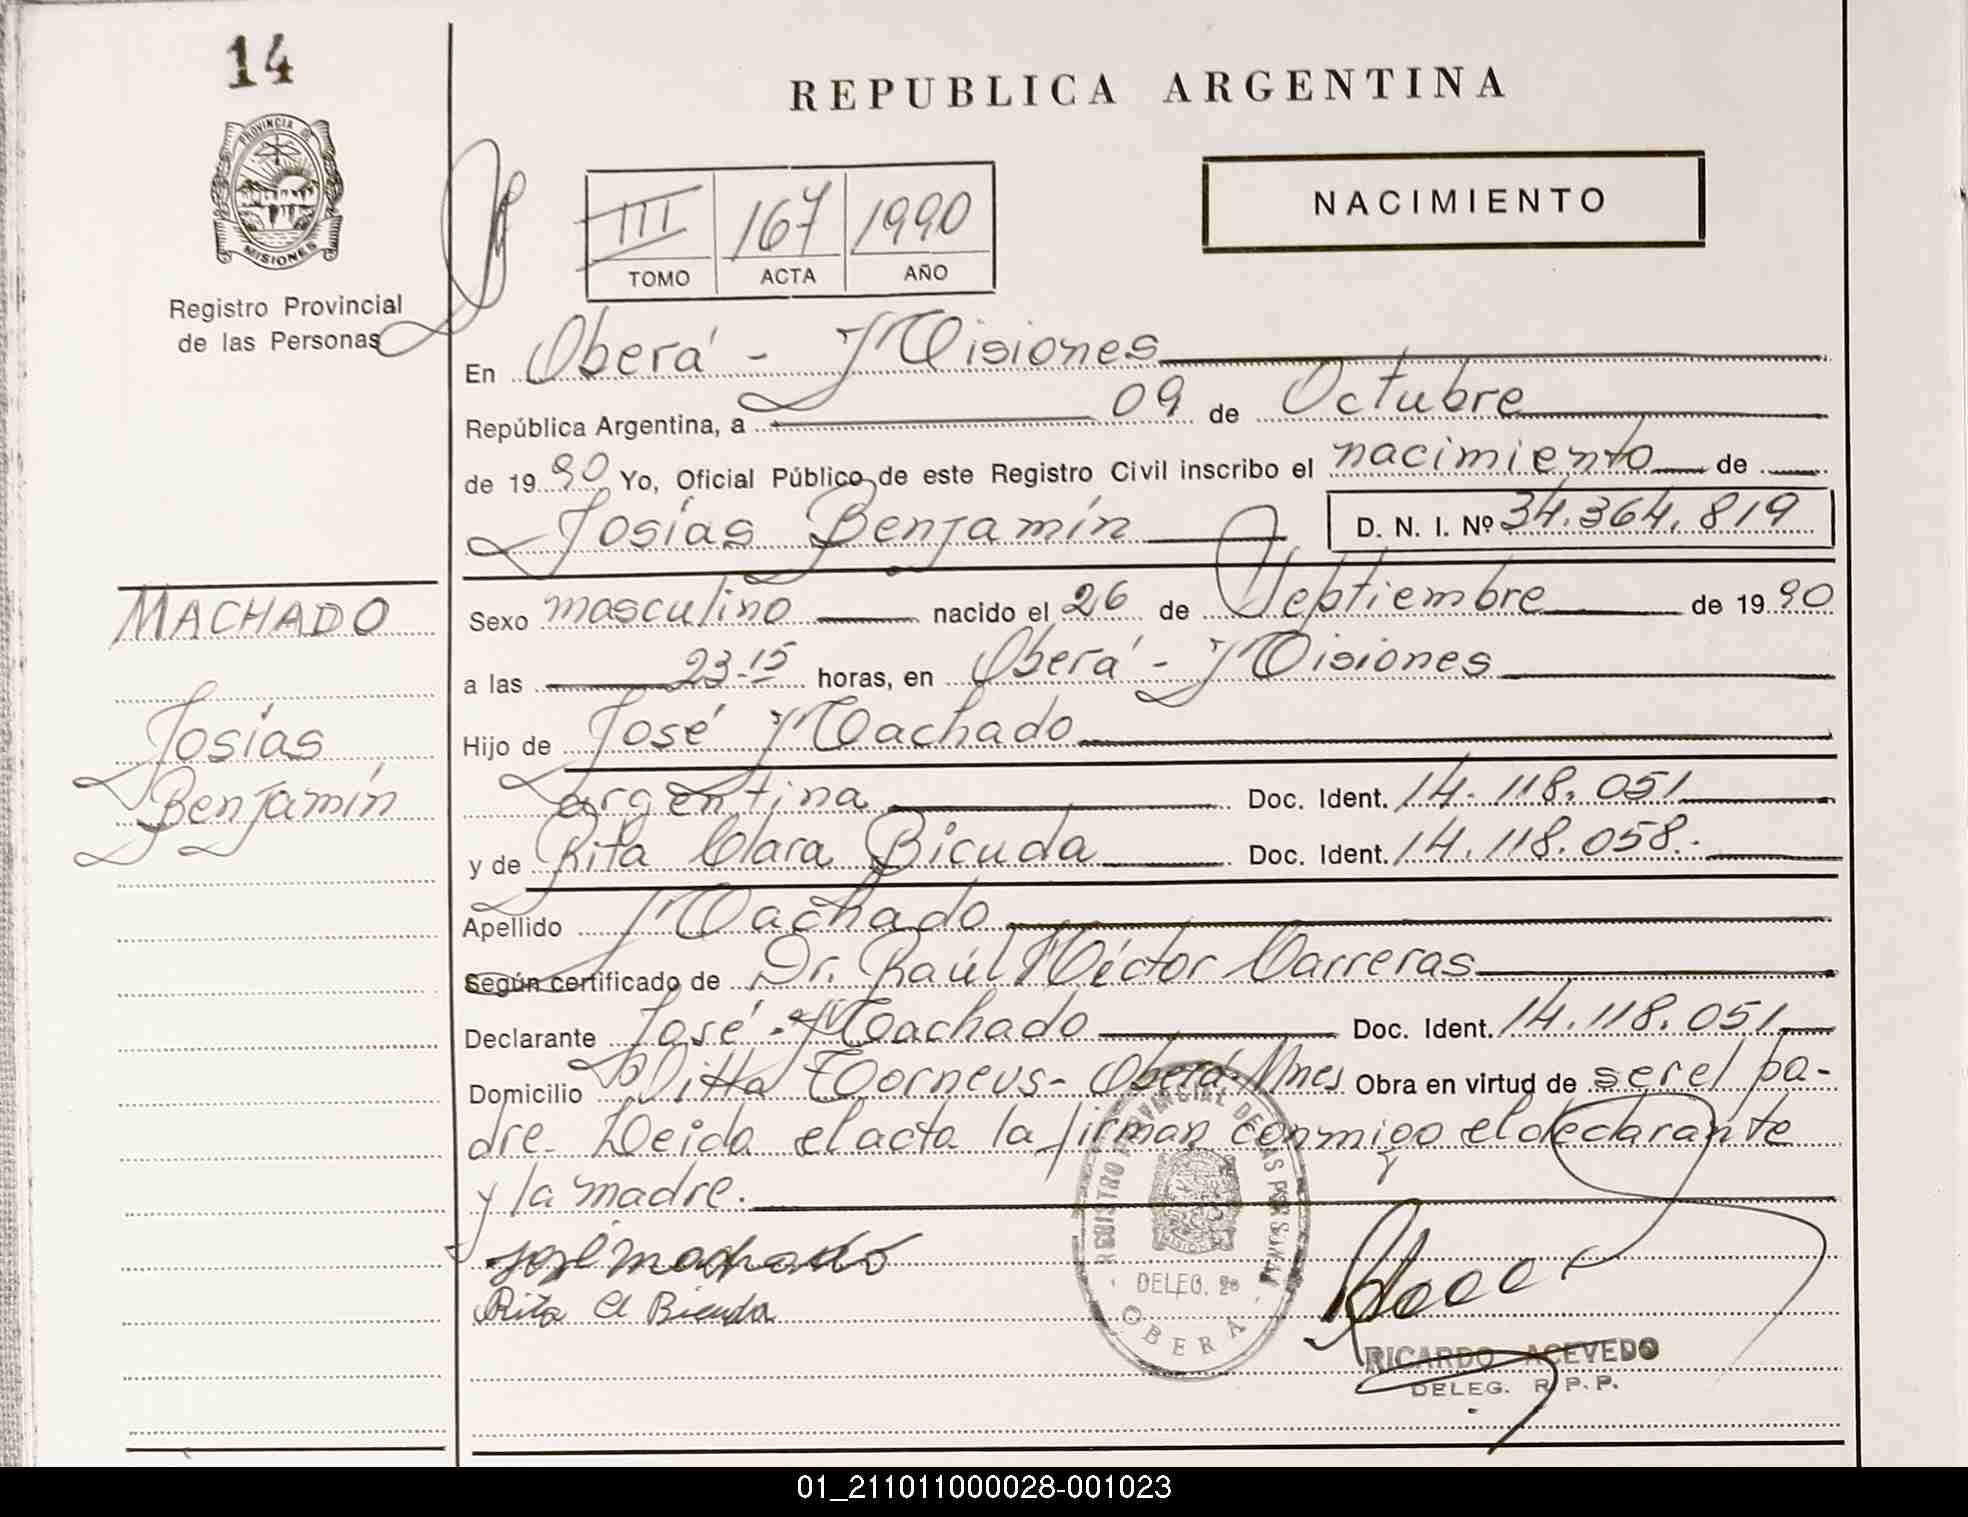 14
REPUBLICA ARGENTINA
PROVINCIA DE
MISIONES
NACIMIENTO
III 167 1990
TOMO ACTA AÑO
Registro Provincial
de las Personas
En Oberá - Misiones
República Argentina, a 09 de Octubre
de 1990 Yo, Oficial Público de este Registro Civil inscribo el nacimiento de
Josías Benjamín D. N. I. Nº 34.364.819
MACHADO
Josías
Benjamín
Sexo masculino nacido el 26 de Septiembre de 1990
a las 23-15 horas, en Oberá - Misiones
Hijo de José Machado
argentina Doc. Ident. 14.118.051
y de Rita Clara Bicuda Doc. Ident. 14.118.058.
Apellido Machado
Según certificado de Dr. Raúl Héctor Carreras
Declarante José Machado Doc. Ident. 14.118.051
Domicilio Oberá-Mnes Obra en virtud de ser el pa-
dre. Leida el acta la firman conmigo el declarante
y la madre.
José Machado
Rita C Bicuda
REGISTRO PROVINCIAL DE LAS PERSONAS
MISIONES
DELEG. 2º
OBERÁ
RICARDO ACEVEDO
DELEG. R.P.P.
01_211011000028-001023